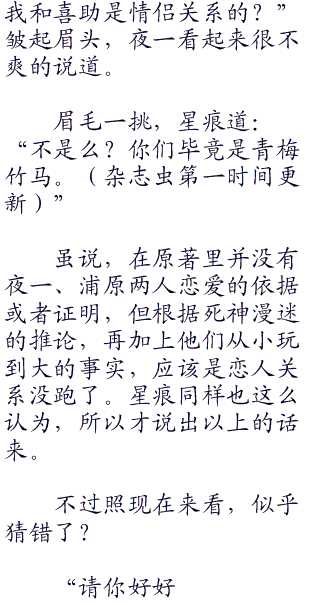 我和喜助是情侣关系的？”
皱起眉头，夜一看起来很不
爽的说道。
眉毛一挑，星痕道：
“不是么？你们毕竟是青梅
竹马。（杂志虫第一时间更
新）”
虽说，在原著里并没有
夜一、浦原两人恋爱的依据
或者证明，但根据死神漫迷
的推论，再加上他们从小玩
到大的事实，应该是恋人关
系没跑了。星痕同样也这么
认为，所以才说出以上的话
来。
不过照现在来看，似乎
猜错了？
“请你好好